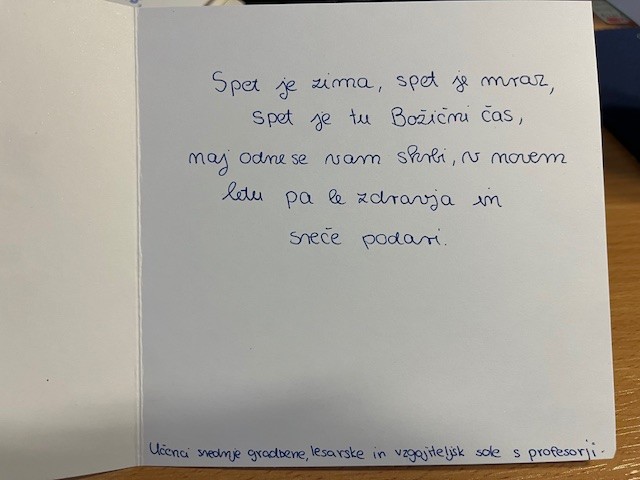 Spet je zima, spet je mraz,
spet je tu Božični čas,
naj odnese vam skrbi, v novem
letu pa le zdravja in
sreče podari.
Učenci srednje gradbene, lesarske in vzgojiteljsk sole s profesorji.